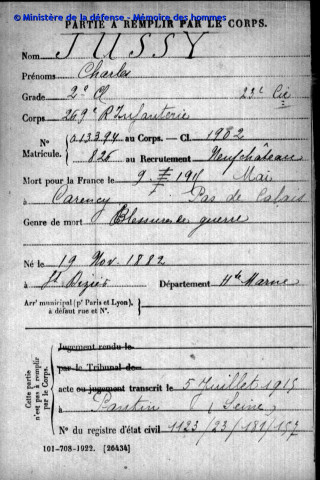 © Ministère de la défense - Mémoire des hommes
PARTIE À REMPLIR PAR LE CORPS.
Nom JUSSY
Prénoms Charles
Grade 2e Cl 23e Cie
Corps 269e R Infanterie
N° 013394 au Corps. — Cl. 1902
Matricule. 826 au Recrutement Neufchâteau
Mort pour la France le 9 Mai 1915
à Carency Pas de Calais
Genre de mort Blessures de guerre
Né le 19 Nov. 1882
à St Dizier Département Hte Marne
Arrt municipal (pr Paris et Lyon),
à défaut rue et N°.
Cette partie n'est pas à remplir par le Corps.
Jugement rendu le
par le Tribunal de
acte ou jugement transcrit le 5 Juillet 1915
à Pantin (Seine)
N° du registre d'état civil 1123/23/181/157
101-708-1922. [26434]